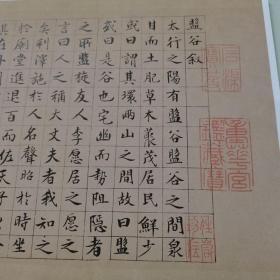 盤谷叙
太行之陽有盤谷盤谷之間泉
甘而土肥草木藂茂居民鮮少
或曰謂其環兩山之間故曰盤
或曰是谷也宅幽而勢阻隱者
之所盤旋友人李愿居之愿之
言曰人之稱大丈夫者我知之
矣利澤施於人名聲昭於時坐
於廟堂進退百官而佐天子
重華宮鑑藏寶